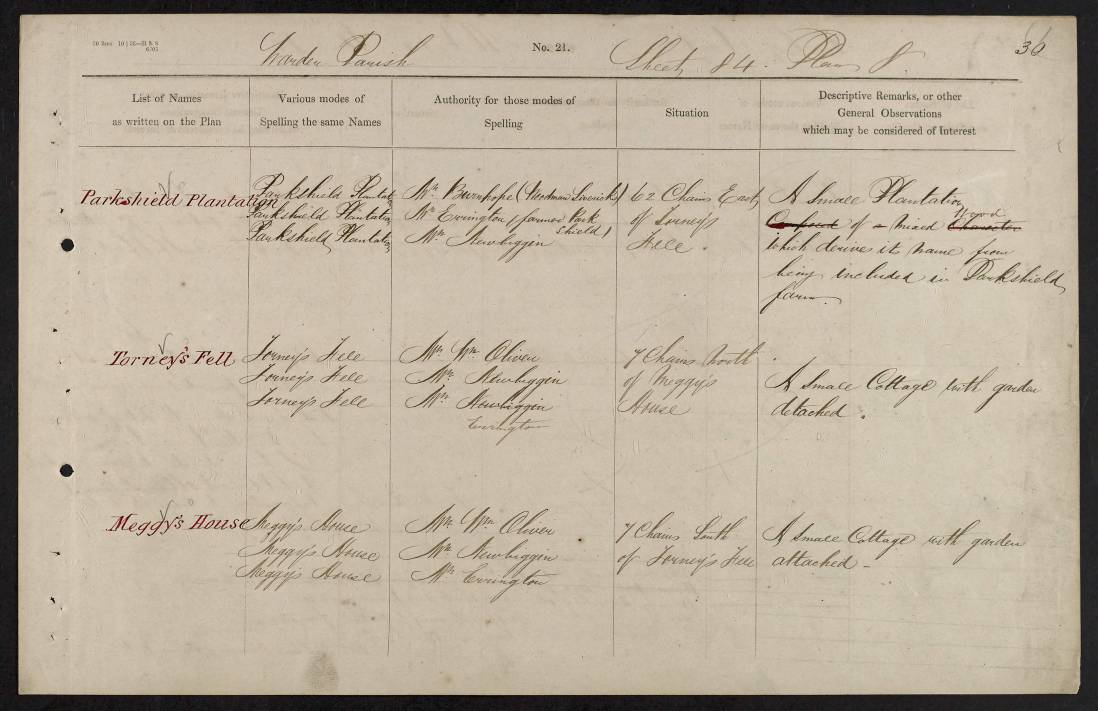 Warden Parish
No. 21.
Sheet 84. Plan 8.
36
List of Names
as written on the Plan
Various modes of
Spelling the same Names
Authority for those modes of
Spelling
Situation
Descriptive Remarks, or other
General Observations
which may be considered of Interest
Parkshield Plantation
Parkshield Plantatn
Parkshield Plantatn
Parkshield Plantatn
Mr. (Woodman
Mr. Errington (farmer Park
Shield)
Mr. Newbiggin
62 Chains East
of Torney's
Fell.
A small Plantation
Composed of a mixed Character
Wood
which derive its name from
being included in Parkshield
farm.
Torney's Fell
Torney's Fell
Torney's Fell
Torney's Fell
Mr. Wm. Oliver
Mr. Newbiggin
Mr. Newbiggin
Errington
7 Chains North
of Meggy's
House
A small Cottage with garden
detached.
Meggy's House
Meggy's House
Meggy's House
Meggy's House
Mr. Wm. Oliver
Mr. Newbiggin
Mr. Errington
7 Chains South
of Torney's Fell
A small Cottage with garden
attached -